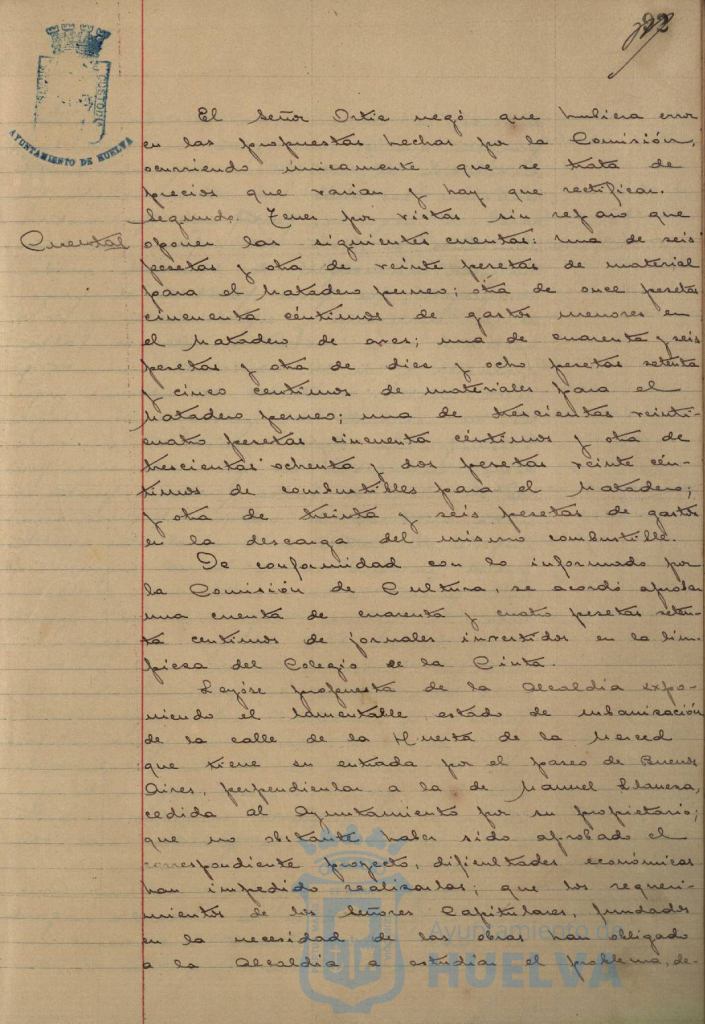 CUSTODIA
AYUNTAMIENTO DE HUELVA
El Señor Ortiz negó que hubiera error
en las propuestas hechas por la Comisión,
ocurriendo únicamente que se trata de
precios que varian y hay que rectificar.
Segundo. Tener por vistas sin reparo que
Cuentas
oponer las siguientes cuentas: una de seis
pesetas y otra de veinte pesetas de material
para el Matadero perneo; otra de once pesetas
cincuenta céntimos de gastos menores en
el Matadero de aves; una de cuarenta y seis
pesetas y otra de diez y ocho pesetas setenta
y cinco centimos de materiales para el
Matadero perneo; una de trescientas veinti-
cuatro pesetas cincuenta céntimos y otra de
trescientas ochenta y dos pesetas veinte cén-
timos de combustibles para el Matadero;
y otra de treinta y seis pesetas de gastos
en la descarga del mismo combustible.
De conformidad con lo informado por
la Comisión de Cultura, se acordó aprobar
una cuenta de cuarenta y cuatro pesetas seten-
ta centimos de jornales invertidos en la lim-
pieza del Colegio de la Cinta.
Leyóse propuesta de la Alcaldia expo-
niendo el lamentable estado de urbanización
de la calle de la Huerta de la Merced
que tiene su entrada por el paseo de Buenos
Aires, perpendicular a la de Manuel
cedida al Ayuntamiento por su propietario;
que no obstante haber sido aprobado el
correspondiente proyecto, dificultades económicas
han impedido realizarlas; que los requeri-
mientos de los Señores Capitulares, fundados
en la necesidad de las obras han obligado
a la Alcaldia a estudiar el problema, de-
Ayuntamiento de
HUELVA